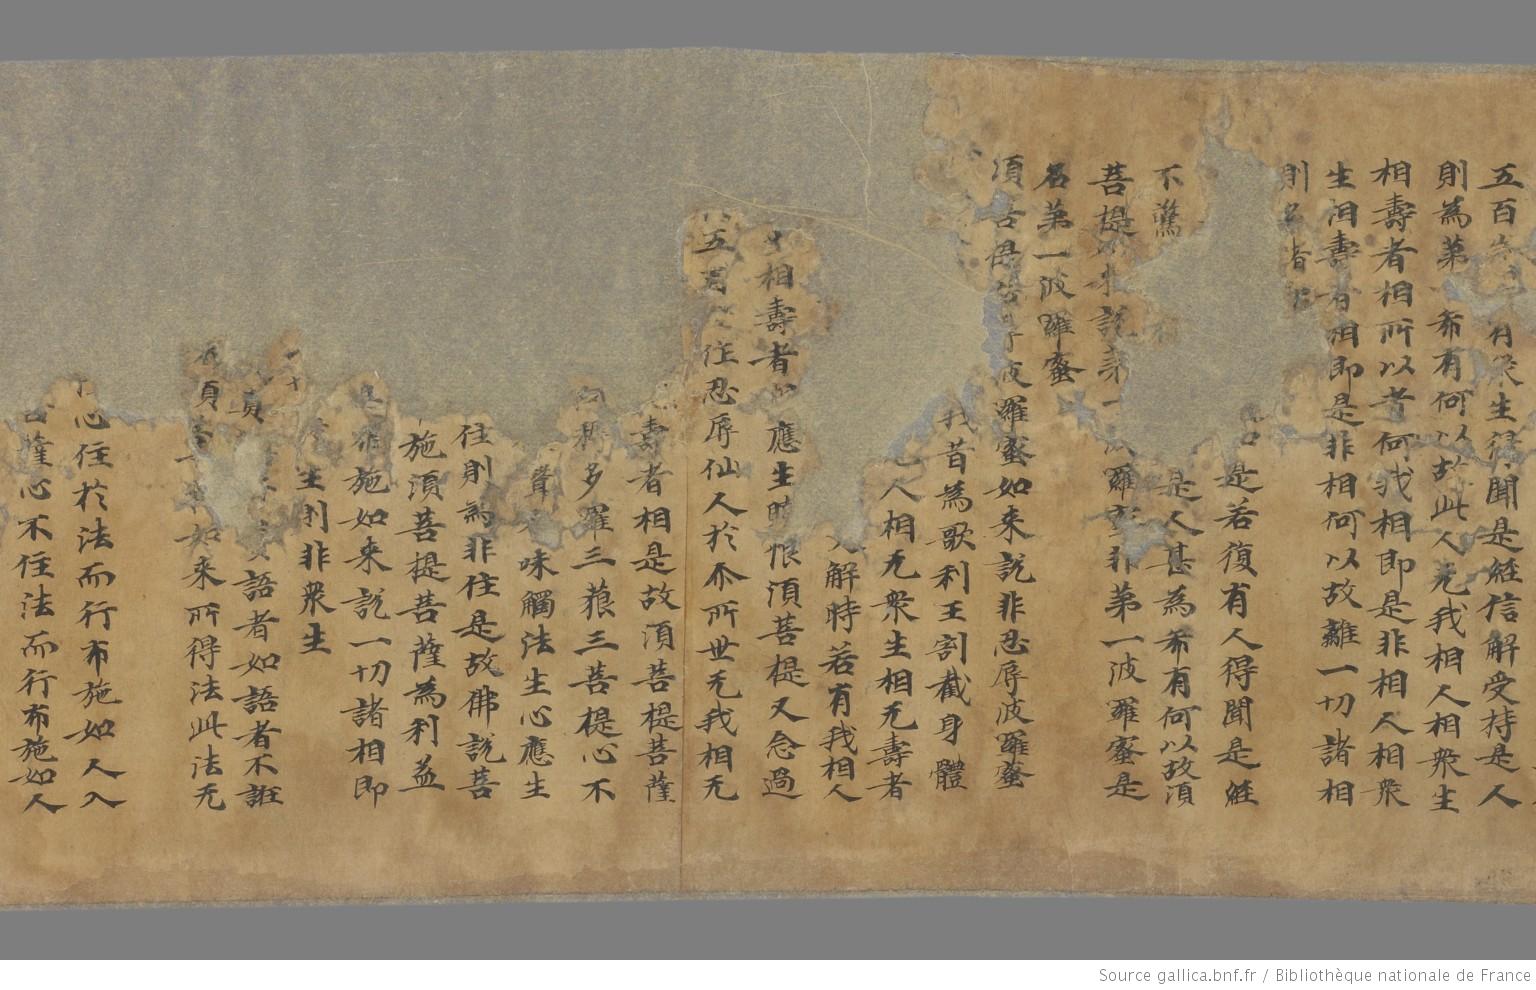 五百有眾生得聞是經信解受持是人
則為第希有何以故此人无我相人相眾生
相壽者相所以者何我相即是非相人相眾
生相壽者相即是非相何以故離一切諸相
則名者
是若復有人得聞是經
不驚是人甚為希有何以故須
菩提來說第一波羅蜜非第一波羅蜜是
名第一波羅蜜
須菩提波羅蜜如来說非忍辱波羅蜜
我昔為歌利王割截身體
人相无眾生相无壽者
解時若有我相人
相壽者應生恨須菩提又念過
五百住忍辱仙人於尒所世无我相无
壽者相是故須菩提菩薩
多羅三藐三菩提心不
聲味觸法生心應生
住則為非住是故佛說菩
施須菩提菩薩為利益
施如来說一切諸相即
生則非眾生
語者如語者不誑
須如来所得法此法无
心住於法而行布施如人入
薩心不住法而行布施如人
Source gallica.bnf.fr / Bibliothèque nationale de France